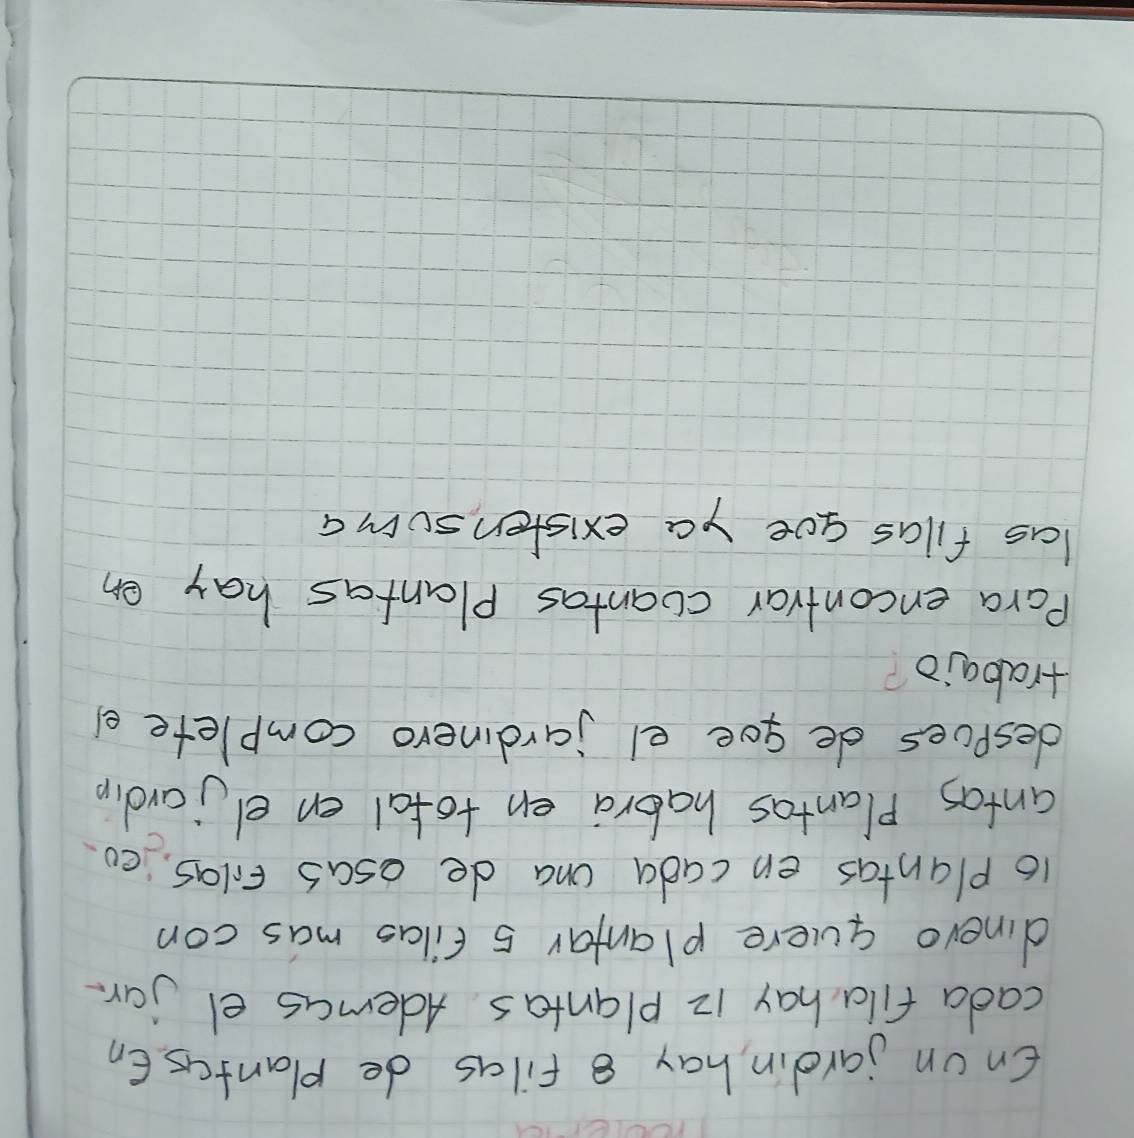 Problema
En un jardin, hay 8 filas de plantas. En
cada fila, hay 12 plantas. Ademas el jar-
dinero quiere plantar 5 filas más con
10 plantas en cada una de esas filas. ¿cu-
antas plantas habrá en total en el jardin
despues de que el jardinero complete el
trabajo?
Para encontrar cuantas plantas hay en
las filas que ya existen, suma